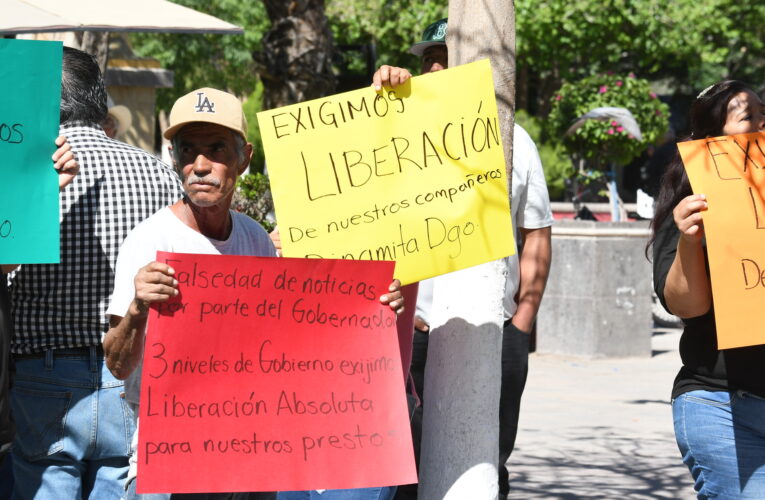 OS
O.
LA
EXIGIMOS
LIBERACIÓN
De nuestros compañeras
Dinamita Dgo.
Falsedad de noticias
Por parte del Gobernador
3 niveles de Gobierno exijimo
Liberación Absoluta
para nuestros prestos
EXI
L
De